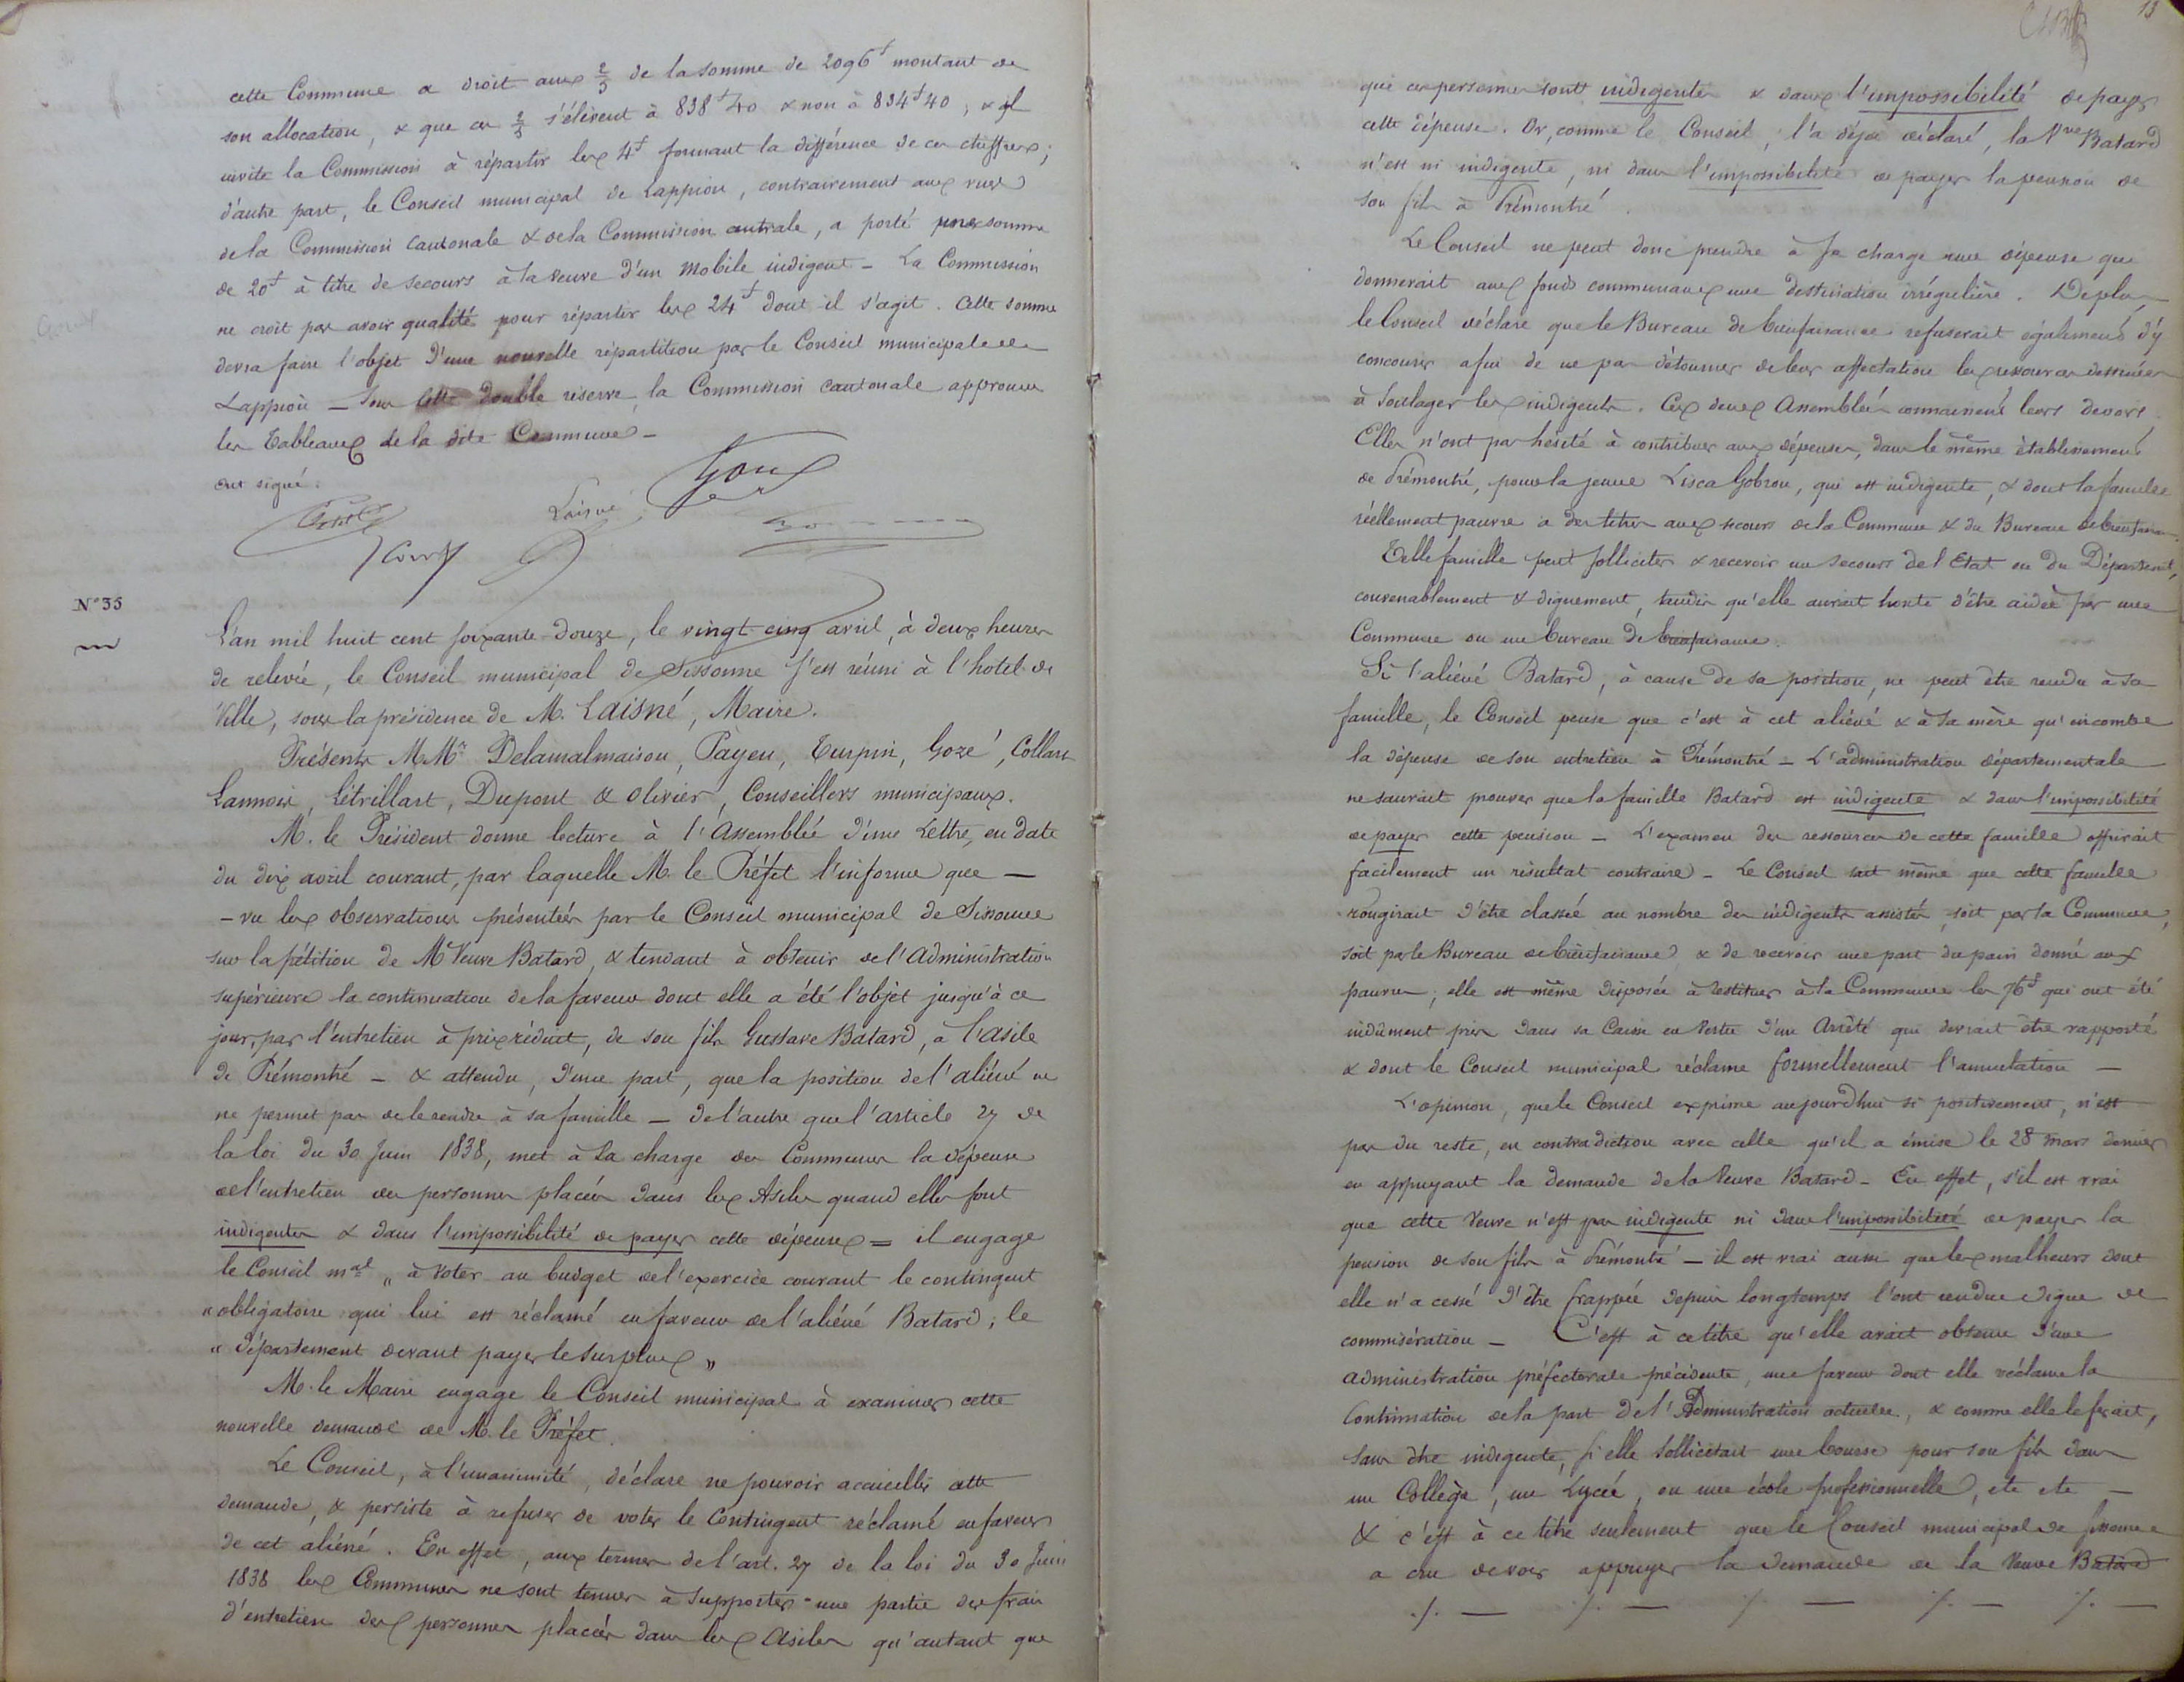 cette Commune a droit aux 2/5 de la somme de 2096f montant de
son allocation, & que ces 2/5 s'élèvent à 838f40 & non à 834f40, & il
invite la Commission à répartir les 4f formant la différence de ces chiffres;
d'autre part, le Conseil municipal de Lappion, contrairement aux vues
de la Commission Cantonale & de la Commission centrale, a porté une somme
de 20f à titre de secours à la veuve d'un Mobile indigent - La Commission
ne croit pas avoir qualité pour répartir les 24f dont il s'agit. Cette somme
devra faire l'objet d'une nouvelle répartition par le Conseil municipal de
Lappion - Sous cette double réserve, la Commission Cantonale approuve
les Tableaux de la dite Commune -
ont signé:
Goux
Laisné
N° 35
L'an mil huit cent soixante-douze, le vingt cinq avril, à deux heures
de relevée, le Conseil municipal de Sissonne s'est réuni à l'hotel de
Ville, sous la présidence de M. Laisné, Maire.
Présents MMrs Delamalmaison, Payen, Turpin, Gozé, Collart
Lannois, Létrillart, Dupont & Olivier, Conseillers municipaux.
M. le Président donne lecture à l'Assemblée d'une Lettre, en date
du dix avril courant, par laquelle M. le Préfet l'informe que —
- vu les observations présentées par le Conseil municipal de Sissonne
sur la pétition de Me Veuve Batard, & tendant à obtenir de l'Administration
supérieure la continuation de la faveur dont elle a été l'objet jusqu'à ce
jour, par l'entretien à prix réduit, de son fils Gustave Batard, à l'asile
de Prémontré - & attendu, d'une part, que la position de l'aliéné ne
ne permet pas de le rendre à sa famille — de l'autre que l'article 27 de
la loi du 30 Juin 1838, met à la charge des Communes la dépense
de l'entretien des personnes placées dans les Asiles quand elles sont
indigentes & dans l'impossibilité de payer cette dépense = il engage
le Conseil mal „ à voter au budget de l'exercice courant le contingent
" obligatoire qui lui est réclamé en faveur de l'aliéné Batard; le
" Département devant payer le surplus „
M. le Maire engage le Conseil municipal à examiner cette
nouvelle demande de M. le Préfet.
Le Conseil, à l'unanimité, déclare ne pouvoir accueillir cette
demande, & persiste à refuser de voter le Contingent réclamé en faveur
de cet aliéné. En effet, aux termes de l'art. 27 de la loi du 30 Juin
1838 les Communes ne sont tenues à supporter une partie des frais
d'entretien des personnes placées dans les Asiles qu'autant que
13
que ces personnes sont indigentes & dans l'impossibilité de payer
cette dépense. Or, comme le Conseil, l'a déjà déclaré, la Vve Batard
n'est ni indigente, ni dans l'impossibilité de payer la pension de
son fils à Prémontré.
Le Conseil ne peut donc prendre à sa charge une dépense que
donnerait aux fonds communaux une destination irrégulière. De plus
le Conseil déclare que le Bureau de bienfaisance refuserait également d'y
concourir afin de ne pas détourner de leur affectation les ressources destinées
à soulager les indigents. Ces deux Assemblées connaissent leurs devoirs.
Elles n'ont pas hésité à contribuer aux dépenses, dans le même établissement
de Prémontré, pour la jeune Lisca Gobron, qui est indigente, & dont la famille
réellement pauvre a des titres aux secours de la Commune & du Bureau de bienfaisance.
Telle famille peut solliciter & recevoir un secours de l'Etat ou du Département,
convenablement & dignement, tandis qu'elle aurait honte d'être aidée par une
Commune ou un bureau de bienfaisance.
Si l'aliéné Batard, à cause de sa position, ne peut être rendu à sa
famille, le Conseil pense que c'est à cet aliéné & à sa mère qu'incombe
la dépense de son entretien à Prémontré - L'administration départementale
ne saurait prouver que la famille Batard est indigente & dans l'impossibilité
de payer cette pension - L'examen des ressources de cette famille offrirait
facilement un résultat contraire - Le Conseil sait même que cette famille
rougirait d'être classée au nombre des indigents assistés, soit par la Commune,
soit par le Bureau de bienfaisance & de recevoir une part du pain donné aux
pauvres; elle est même disposée à restituer à la Commune les 76f qui ont été
indûment pris dans sa Caisse en vertu d'un Arrêté qui devrait être rapporté
& dont le Conseil municipal réclame formellement l'annulation —
L'opinion, que le Conseil exprime aujourdhui si positivement, n'est
pas du reste, en contradiction avec celle qu'il a émise le 28 mars dernier
en appuyant la demande de la Veuve Batard - En effet, s'il est vrai
que cette Veuve n'est pas indigente ni dans l'impossibilité de payer la
pension de son fils à Prémontré — il est vrai aussi que les malheurs dont
elle n'a cessé d'être frappée depuis longtemps l'ont rendue digne de
commisération - C'est à ce titre qu'elle avait obtenu d'une
administration préfectorale précédente, une faveur dont elle réclame la
Continuation de la part de l'Administration actuelle, & comme elle le ferait,
sans être indigente, si elle sollicitait une bourse pour son fils dans
un Collège, un Lycée, ou une école professionnelle, etc etc —
& c'est à ce titre seulement que le Conseil municipal de Sissonne
a cru devoir appuyer la demande de la Veuve Batard
./. — ./. — ./. — ./. — ./. —